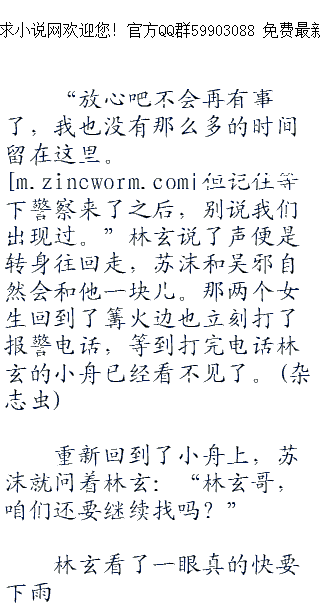 求小说网欢迎您! 官方QQ群59903088 免费最新
“放心吧不会再有事
了，我也没有那么多的时间
留在这里。
[m.zincworm.com]但记住等
下警察来了之后，别说我们
出现过。”林玄说了声便是
转身往回走，苏沫和吴邪自
然会和他一块儿。那两个女
生回到了篝火边也立刻打了
报警电话，等到打完电话林
玄的小舟已经看不见了。(杂
志虫)
重新回到了小舟上，苏
沫就问着林玄：“林玄哥，
咱们还要继续找吗？”
林玄看了一眼真的快要
下雨